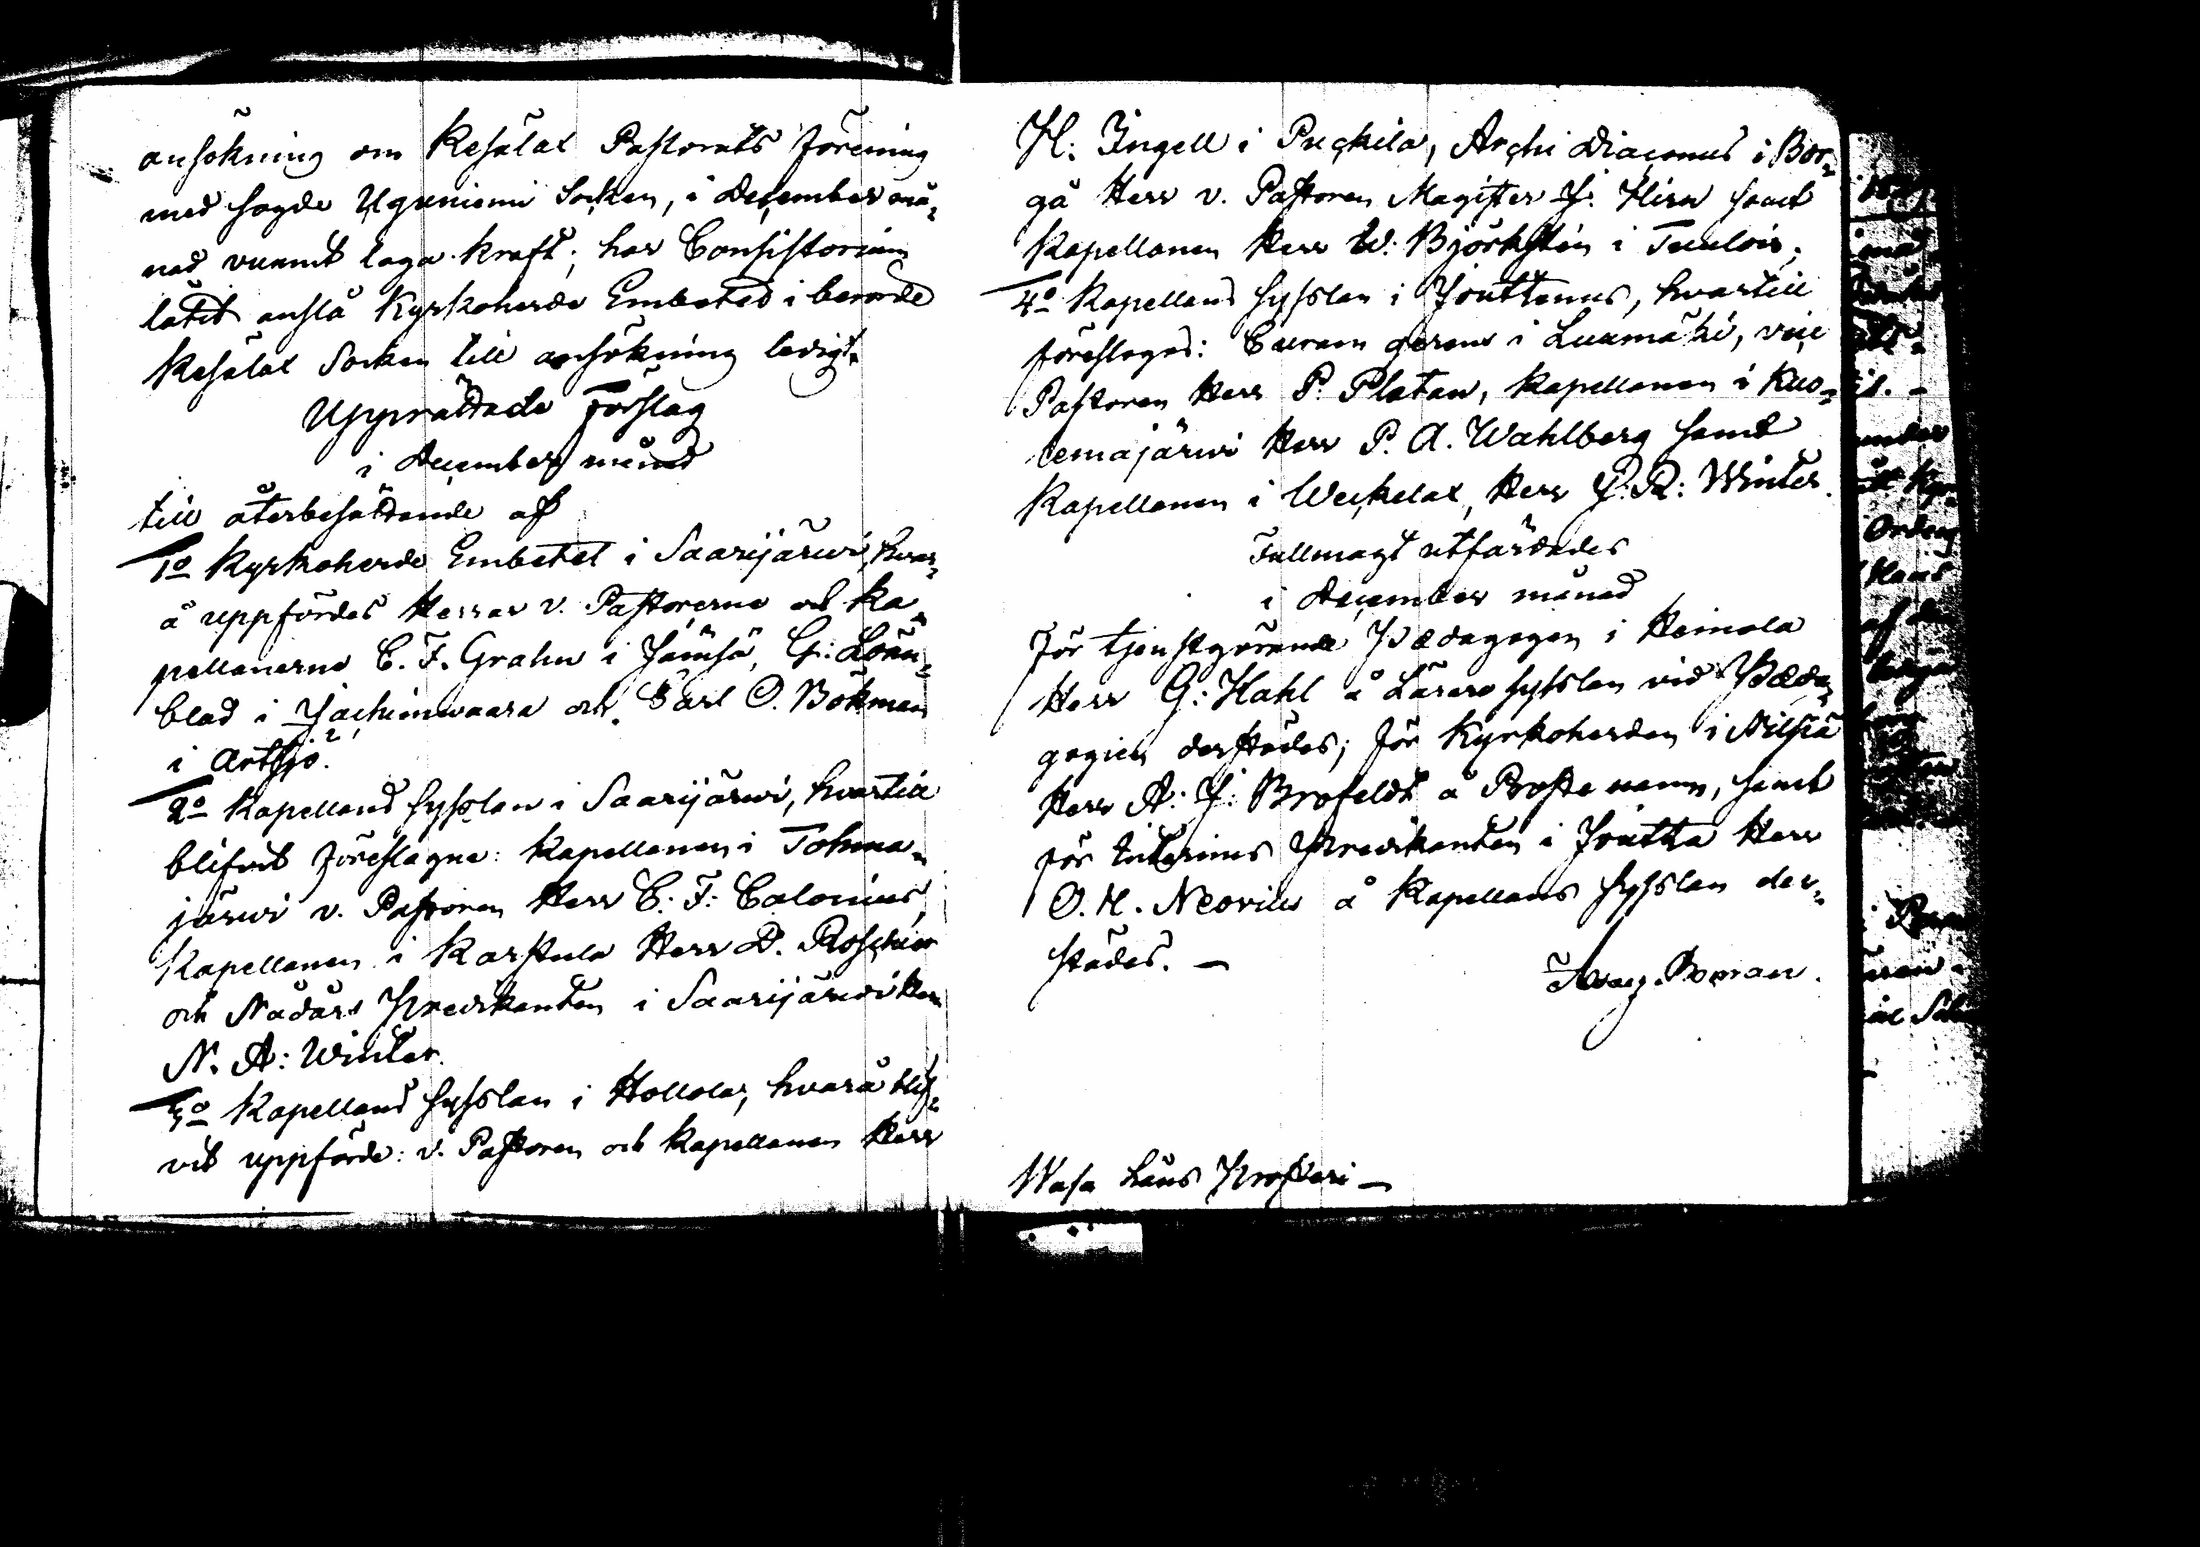 ansökning om Kesälax Pastorats förening
med sagde Uguniemi Socken, i December må-
nad vunnit laga kraft; har Consistorium
låtit anslå Kyrkoherde Embetet i berörde
Kesälax Socken till ansökning ledigt.
Upprättade Förslag
i December månad
till återbesättande af
1o Kyrkoherde Embetet i Saarijärwi, hvar-
å uppfördes Herrar v. Pastorerne och Ka-
pellanerne C. F. Grahn i Jämsä, G: Lönn-
blad i Jachimwaara och Carl O. Bökman
i Artsjö.
2o Kapellans sysslan i Saarijärwi, hvartill
blifvit föreslagne: Kapellanen i Tohma-
järwi v. Pastoren Herr C: F: Calonius,
Kapellanen i Karstula Herr D. Roschier
och Nådårs Predikanten i Saarijärwi Herr
N. A: Winter.
3o Kapellans sysslan i Hollola, hvarå blif-
vit uppförde: v. Pastoren och Kapellanen Herr
H: Ingell i Puckila, Archi Diaconus i Bor-
gå Herr v. Pastoren Magister J: Hirn samt
Kapellanen Herr W: Björkstén i Tuulois;
4o Kapellans sysslan i Jouttenus, hvartill
föreslages: Curam gerens i Luumäki, vice
Pastoren Herr P. Platan, Kapellanen i Kuo-
lemajärwi Herr P. A. Wahlberg samt
Kapellanen i Weckelax, Herr P: R: Winter.
Fullmagt utfärdades
i December månad
för tjenstgörande Pædagogen i Heinola
Herr G: Hahl å Lärare sysslan vid Pæda-
gogien derstädes; för Kyrkoherden i Nilsiä
Herr A: J: Brofeldt å Proste namn, samt
för Interims Predikanten i Joutta Herr
O. H. Neovius å Kapellans sysslan der-
städes. —
Boman.
Wasa Läns Prosteri —